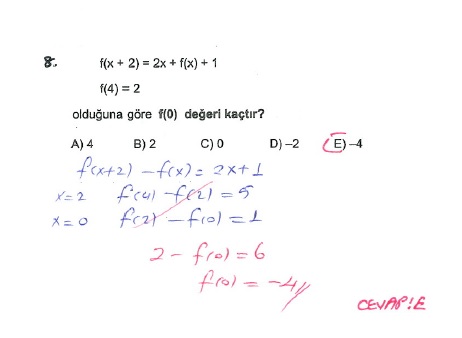 8. f(x + 2) = 2x + f(x) + 1
f(4) = 2
olduğuna göre f(0) değeri kaçtır?
A) 4 B) 2 C) 0 D) –2 E) –4
f(x+2) – f(x) = 2x+1
x=2 f(4) – f(2) = 5
x=0 f(2) – f(0) = 1
2 – f(0) = 6
f(0) = –4
CEVAP: E